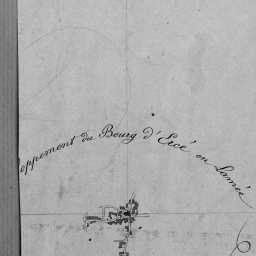 oppement du Bourg d'Ercé en Lamée